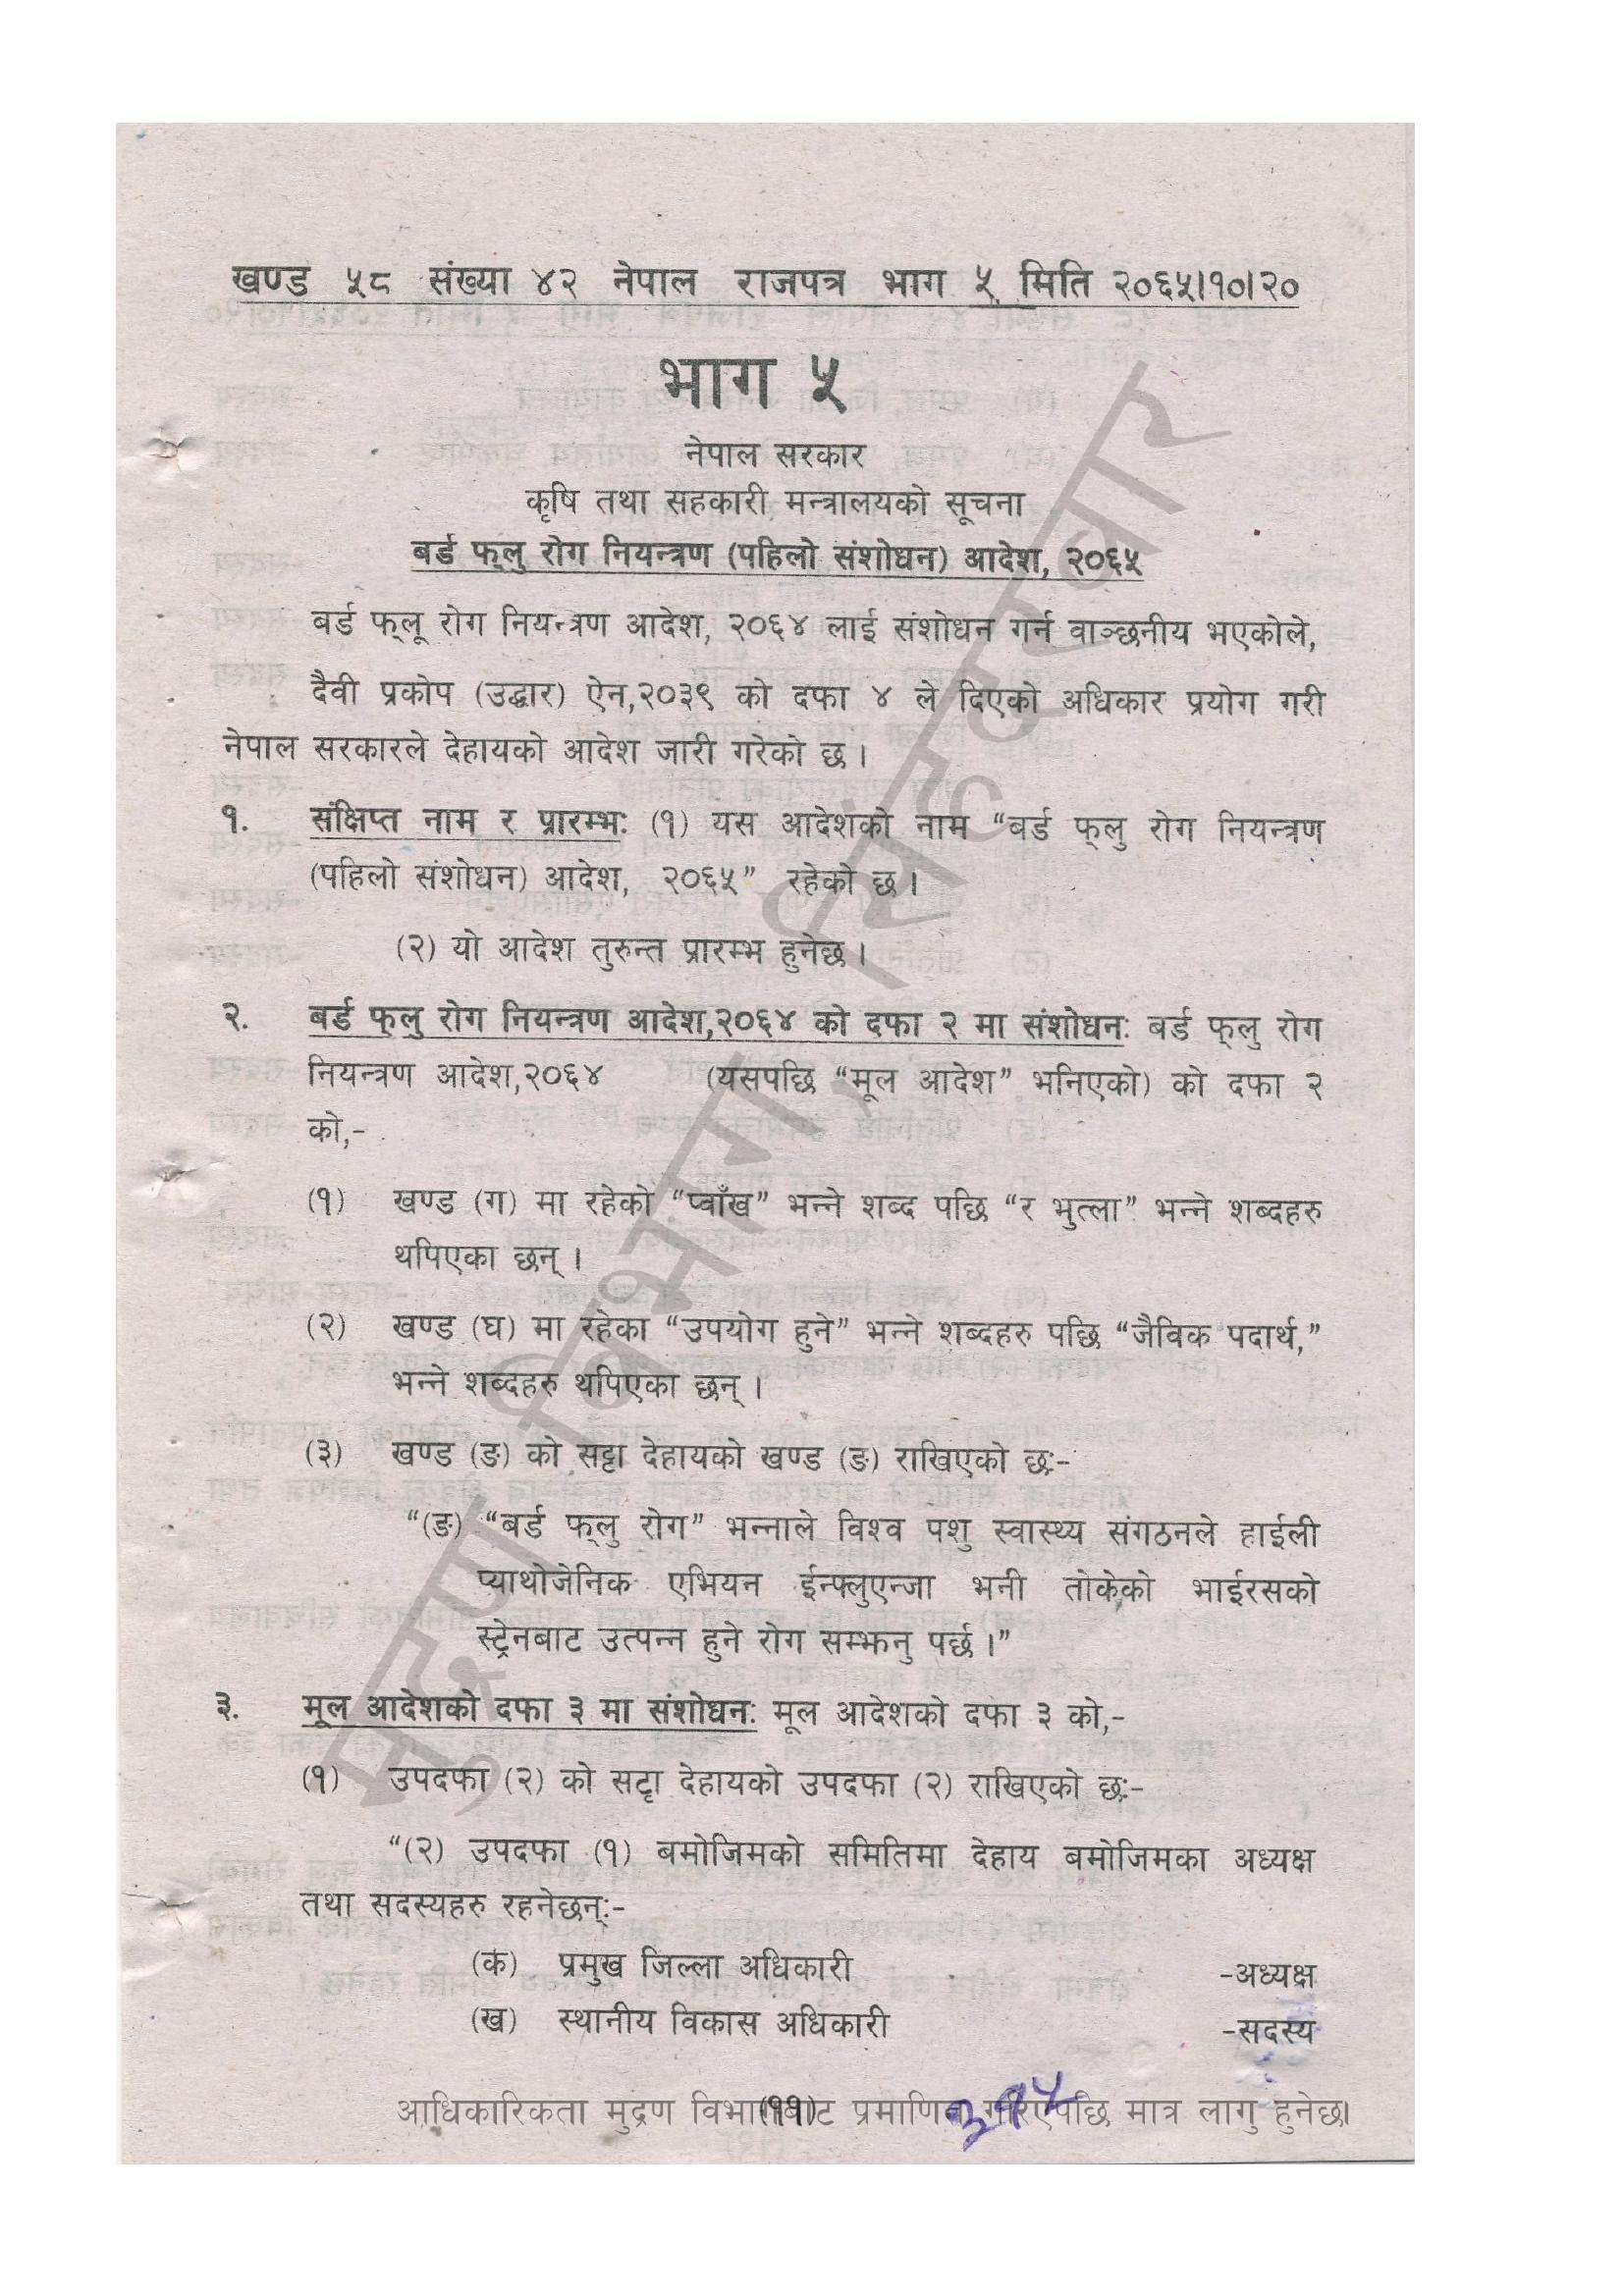 खण्ड ५८ संख्या ४२ नेपाल राजपत्र भाग ५ मिति २०६५।१०।२०
भाग ५
नेपाल सरकार
कृषि तथा सहकारी मन्त्रालयको सूचना
बर्ड फ्लु रोग नियन्त्रण (पहिलो संशोधन) आदेश, २०६५
बर्ड फ्लू रोग नियन्त्रण आदेश, २०६४ लाई संशोधन गर्न वाञ्छनीय भएकोले,
दैवी प्रकोप (उद्धार) ऐन,२०३९ को दफा ४ ले दिएको अधिकार प्रयोग गरी
नेपाल सरकारले देहायको आदेश जारी गरेको छ ।
१. संक्षिप्त नाम र प्रारम्भः (१) यस आदेशको नाम “बर्ड फ्लु रोग नियन्त्रण
(पहिलो संशोधन) आदेश, २०६५” रहेको छ ।
(२) यो आदेश तुरुन्त प्रारम्भ हुनेछ ।
२. बर्ड फ्लु रोग नियन्त्रण आदेश,२०६४ को दफा २ मा संशोधनः बर्ड फ्लु रोग
नियन्त्रण आदेश,२०६४ (यसपछि “मूल आदेश” भनिएको) को दफा २
को,-
(१) खण्ड (ग) मा रहेको “प्वाँख” भन्ने शब्द पछि “र भुत्ला” भन्ने शब्दहरु
थपिएका छन् ।
(२) खण्ड (घ) मा रहेका “उपयोग हुने” भन्ने शब्दहरु पछि “जैविक पदार्थ,”
भन्ने शब्दहरु थपिएका छन् ।
(३) खण्ड (ङ) को सट्टा देहायको खण्ड (ङ) राखिएको छः-
“(ङ) “बर्ड फ्लु रोग” भन्नाले विश्व पशु स्वास्थ्य संगठनले हाईली
प्याथोजेनिक एभियन ईन्फ्लुएन्जा भनी तोकेको भाईरसको
स्ट्रेनबाट उत्पन्न हुने रोग सम्झनु पर्छ ।”
३. मूल आदेशको दफा ३ मा संशोधनः मूल आदेशको दफा ३ को,-
(१) उपदफा (२) को सट्टा देहायको उपदफा (२) राखिएको छः-
“(२) उपदफा (१) बमोजिमको समितिमा देहाय बमोजिमका अध्यक्ष
तथा सदस्यहरु रहनेछन्ः-
(क) प्रमुख जिल्ला अधिकारी -अध्यक्ष
(ख) स्थानीय विकास अधिकारी -सदस्य
(११)
३१५
आधिकारिकता मुद्रण विभागबाट प्रमाणित गरिएपछि मात्र लागु हुनेछ।
मुद्रण विभाग, सिंहदरबार